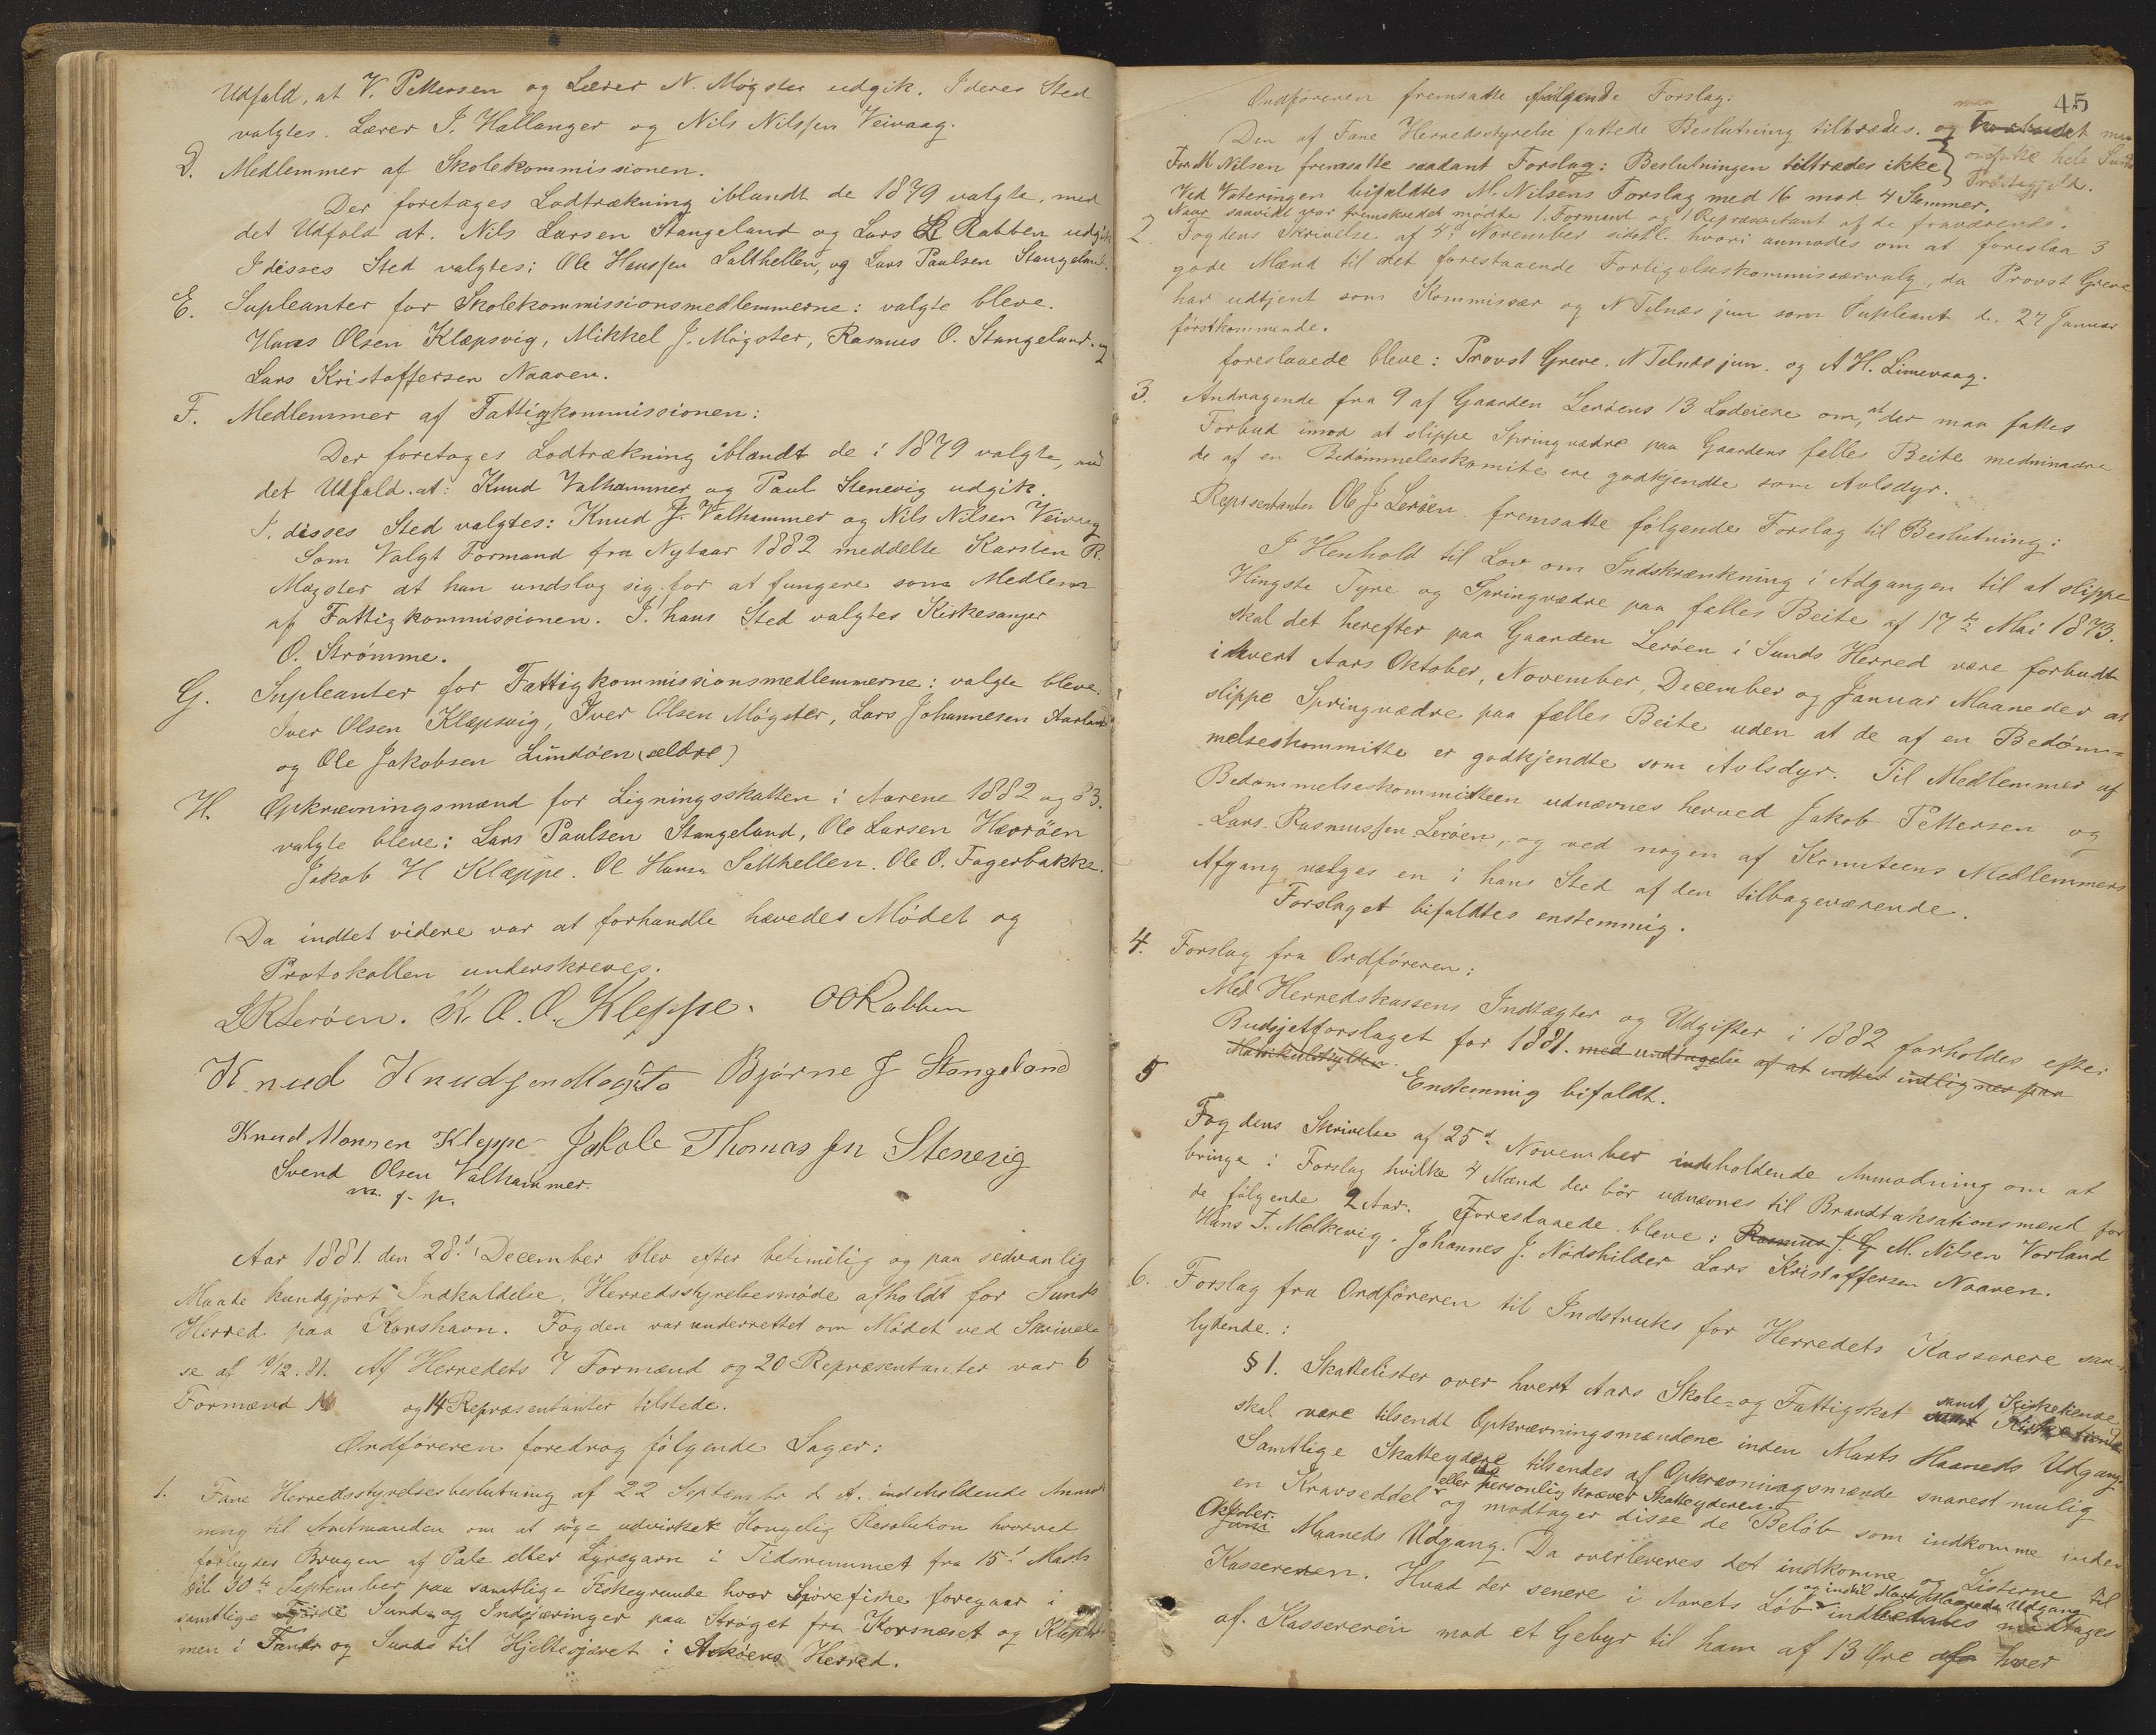 Udfald, at V. Pettersen og Lærer N. Møgster udgik. I deres Sted
valgtes. Lærer J. Hallanger og Nils Nilssen Veivaag.
D. Medlemmer af Skolekommissionen.
Der foretages Lodtrækning iblandt de 1879 valgte, med
det Udfald at. Nils Larsen Stangeland og Lars Rabben udgik
I disses Sted valgtes: Ole Hanssen Salthellen, og Lars Paulsen Stangeland.
E. Supleanter for Skolekommissionsmedlemmerne: valgte bleve.
Hans Olsen Klepsvig, Mikkel J. Møgster, Rasmus O. Stangeland. og
Lars Kristoffersen Naaven.
F. Medlemmer af Fattigkommissionen:
Der foretages Lodtrækning iblandt de i 1879 valgte, med
det Udfald. at: Knud Valhammer og Paul Stenevig udgik.
I. disses Sted valgtes: Knud J. Valhammer og Nils Nilsen Veivaag
Som Valgt Formand fra Nytaar 1882 meddelte Karsten R.
Møgster at han undslog sig for at fungere som Medlem
af Fattigkommissionen. I. hans Sted valgtes Kirkesanger
O. Strømme.
G. Supleanter for Fattigkommissionsmedlemmerne: valgte bleve.
Iver Olsen Klæpsvig, Iver Olsen Møgster, Lars Johannesen Aarland
og Ole Jakobsen Lundøen (ældre)
H. Opkrævningsmænd for Ligningsskatten i Aarene 1882 og 83.
valgte bleve: Lars Paulsen Stangeland, Ole Larsen Hærøen
Jakob H Klæppe. Ol Hansn Salthellen. Ole O. Fagerbakke.
Da indtet videre var at forhandle hævedes Mødet og
Protokollen underskreves.
LRLerøen. K. O. O. Kleppe. OORabben
Knud Knudsen Bjørne J Stangeland
Knud Monsen Kleppe Thomassen Stenevig
Svend Olsen Valhammer.
m. f. p.
Aar 1881 den 28d December blev efter betimelig og paa sedvanlig
Maade kundgjort Indkaldelse, Herredsstyrelsesmøde afholdt for Sunds
Herred paa Korshavn. Fogden var underrettet om Mødet ved Skrivel
se af 10/12.81. Af Herredets 7 Formænd og 20 Repræsentanter var 6
Formænd og 14 Repræsentanter tilstede.
Ordføreren foredrog følgende Sager:
1. Fane Herredsstyrelsesbeslutning af 22 Septembr d. A. indeholdende Anmod
ning til Amtmanden om at søge udvirket Kongelig Resolution hvorved
forbydes Brugen af Pale eller Lyregarn i Tidsrummet fra 15d Marts
til 30te September paa samtlige Fiskegrunde hvor Fiske foregaar i
samtlige Fjorde Sund og Indskjæringer paa Strøget fra Korsneset og Klep
men i Fane og Sunds til Hjeltesjøret i Askøens Herred.
45
Ordføreren fremsatte følgende Forslag:
Den af Fane Herredsstyrelse fattede Beslutning tiltrædes. og Forbudet maa
omfatte hele Sunds
Præstegjeld.
Fra M Nilsen fremsatte saadant Forslag: Beslutningen tiltrædes ikke
Ved Voteringen bifaldtes M. Nilsens Forslag med 16 mod 4 Stemmer.
Naar saavidt var fremskredet mødte 1. Formand og 1 Repræsentant af de fraværende.
2. Fogdens Skrivelse af 4d November sidstl. hvori anmodes om at foreslaa 3
gode Mænd til det forestaaende Forligelseskommissærvalg, da Provst Greve
har udtjent som Kommissær og N Telnæs jun som Supleant d. 27 Januar
førstkommende.
foreslaaede bleve: Provst Greve. N Telnæs jun. og A H. Limevaag.
3. Andragende fra 9 af Gaarden Lerøens 13 Lodeiere om, at der maa fattes
Forbud imod at slippe Springvædre paa Gaardens fælles Beite medmindre
de af en Bedømmelseskomite ere godkjendte som Avlsdyr.
Repræsentanten Ole J. Lerøen fremsatte følgende Forslag til Beslutning:
I Henhold til Lov om Indskrænkning i Adgangen til at slippe
Hingste Tyre og Springvædre paa fælles Beite af 17de Mai 1873.
skal det herefter paa Gaarden Lerøen i Sunds Herred være forbudt
i hvert Aars Oktober, November, December og Januar Maaneder at
slippe Springvædre paa fælles Beite uden at de af en Bedøm=
melseskommitte er godkjendte som Avlsdyr. Til Medlemmer af
Bedømmelseskommitteen udnævnes herved Jakob Pettersen og
Lars Rasmussen Lerøen, og ved nogen af Komiteens Medlemmers
Afgang vælges en i hans Sted af den tilbageværende.
Forslaget bifaldtes enstemmig.
4. Forslag fra Ordføreren:
Med Herredskassens Indtægter og Udgifter i 1882 forholdes efter
Budsjetforslaget for 1881. med undtagelse af at indtet indlignes paa
Matrikulskylden.
Enstemmig bifaldt.
5 Fogdens Skrivelse af 25d November indeholdende Anmodning om at
bringe i Forslag hvilke 4 Mænd der bør udnævnes til Brandtaksationsmænd for
de følgende 2 Aar. Foreslaaede bleve: Rasmus J. G M. Nilsen Vorland
Hans T. Melkevig. Johannes J. Nodshilder Lars Kristoffersen Naaven.
6. Forslag fra Ordføreren til Indstruks for Herredets Kasserere saa-
lydende.:
§ 1. Skattelister over hvert Aars Skole- og Fattigskat samt Kirketiende
skal være tilsendt Opkrævningsmændene inden Marts Maaneds Udgang.
Samtlige Skatteydere tilsendes af Opkrævningsmænde snarest mulig
en Kravseddel eller personlig kræver Skatteyderen. og modtager disse de Beløb som indkomme inden
Oktober Juni Maaneds Udgang. Da overleveres det indkomne og Listerne til
Kassereren. Hvad der senere i Aarets Løb og indtil Marts Maaneds Udgang indbetales modtages
af. Kassereren mod et Gebyr til ham af 13 Øre afr hver